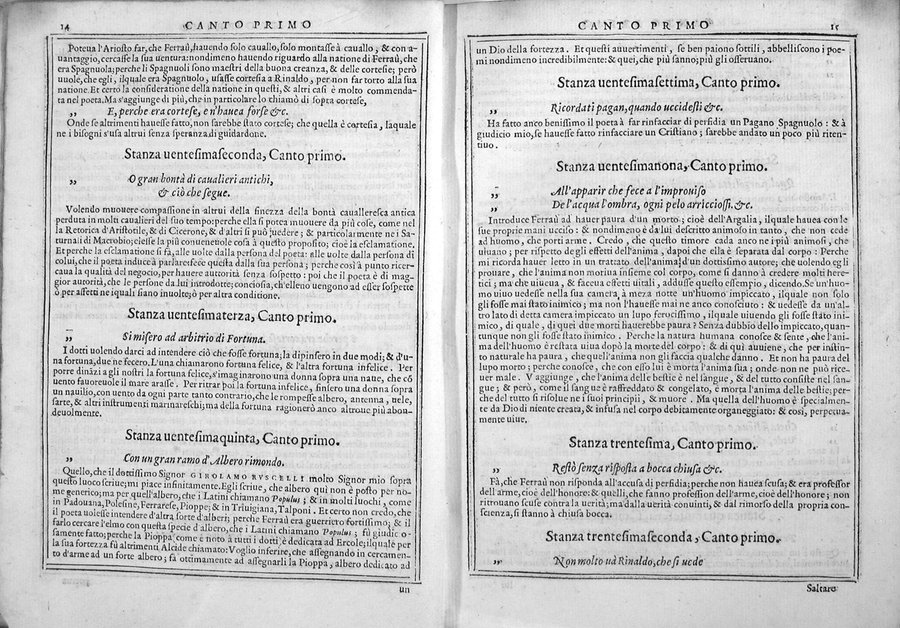 14
CANTO PRIMO
Poteua l'Ariosto far, che Ferraù, hauendo solo cauallo, solo montasse à cauallo, & con a-
uantaggio, cercasse la sua uentura: nondimeno hauendo riguardo alla natione di Ferraù, che
era Spagnuola; perche li Spagnuoli sono maestri della buona creanza, & delle cortesie; però
uuole, che egli, ilquale era Spagnuolo, usasse cortesia a Rinaldo, per non far torto alla sua
natione. Et certo la consideratione della natione in questi, & altri casi è molto commenda-
ta nel poeta. Ma s'aggiunge di più, che in particolare lo chiamò di sopra cortese,
„ E, perche era cortese, e n'hauea forse &c.
Onde se altrimenti hauesse fatto, non sarebbe stato cortese; che quella è cortesia, laquale
ne i bisogni s'usa altrui senza speranza di guidardone.
Stanza uentesimaseconda, Canto primo.
„ O gran bontà di caualieri antichi,
& ciò che segue.
Volendo muouere compassione in altrui della finezza della bontà caualleresca antica
perduta in molti caualieri del suo tempo; perche ella si potea muouere da più cose, come nel
la Retorica d'Aristotile, & di Cicerone, & d'altri si può uedere; & particolarmente ne i Sa-
turnali di Macrobio; elesse la più conueneuole cosa à questo proposito; cioè la esclamatione.
Et perche la esclamatione si fà, alle uolte dalla persona del poeta: alle uolte dalla persona di
colui, che il poeta induce à parlare: fece questa dalla sua persona; perche così à punto ricer-
caua la qualità del negocio, per hauere auttorità senza sospetto: poi che il poeta è di mag-
gior autorità, che le persone da lui introdotte; conciosia, ch'elleno uengono ad esser sospette
ò per affetti ne iquali siano inuolte; ò per altra conditione.
Stanza uentesimaterza, Canto primo.
„ Si misero ad arbitrio di Fortuna.
I dotti uolendo darci ad intendere ciò che fosse fortuna; la dipinsero in due modi; & d'u-
na fortuna, due ne fecero. L'una chiamarono fortuna felice, & l'altra fortuna infelice. Per
porre dinàzi a gli nostri la fortuna felice, s'imaginarono una donna sopra una naue, che cō
uento fauoreuole il mare arasse. Per ritrar poi la fortuna infelice, finsero una donna sopra
un nauilio, con uento da ogni parte tanto contrario, che le rompesse albero, antenna, uele,
sarte, & altri instrumenti marinareschi; ma della fortuna ragionerò anco altroue più abon-
deuolmente.
Stanza uentesimaquinta, Canto primo.
„ Con un gran ramo d'Albero rimondo.
Quello, che il dottissimo Signor GIROLAMO RVSCELLI molto Signor mio sopra
questo luoco scriue; mi piace infinitamente. Egli scriue, che albero qui non è posto per no-
me generico; ma per quell'albero, che i Latini chiamano Populus; & in molti luochi, come
in Padouana, Polesine, Ferrarese, Pioppe; & in Triuigiana, Talponi. Et certo non credo, che
il poeta uolesse intendere d'altra sorte d'alberi; perche Ferraù era guerriero fortissimo; & il
farlo cercare l'elmo con questa specie d'albero, che i Latini chiamano Populus; fù giudic o-
samente fatto; perche la Pioppa come è noto à tutti i dotti è dedicata ad Ercole; ilquale per
la sua fortezza fù altrimenti Alcide chiamato: Voglio inferire, che assegnando in cercamen-
to d'arme ad un forte albero; fà ottimamente ad assegnarli la Pioppa, albero dedicato ad
un
CANTO PRIMO
15
un Dio della fortezza. Et questi auuertimenti, se ben paiono sottili, abbelliscono i poe-
mi nondimeno incredibilmente: & quei, che più sanno; più gli osseruano.
Stanza uentesimasettima, Canto primo.
„ Ricordati pagan, quando uccidesti &c.
Ha fatto anco benissimo il poeta à far rinfacciar di perfidia un Pagano Spagnuolo: & à
giudicio mio, se hauesse fatto rinfacciare un Cristiano; sarebbe andato un poco più riten-
tiuo.
Stanza uentesimanona, Canto primo.
„ All'apparir che fece a l'improuiso
„ De l'acqua l'ombra, ogni pelo arricciossi. &c.
Introduce Ferraù ad hauer paura d'un morto; cioè dell'Argalia, ilquale hauea con le
sue proprie mani ucciso: & nondimeno è da lui descritto animoso in tanto, che non cede
ad huomo, che porti arme. Credo, che questo timore cada anco ne i più animosi, che
uiuano; per rispetto de gli effetti dell'anima, dapoi che ella è separata dal corpo: Perche
mi ricorda hauer letto in un trattato dell'anima d'un dottissimo autore; che uolendo egli
prouare, che l'anima non moriua insieme col corpo, come si danno à credere molti hereti-
ci; ma che uiueua, & faceua effetti uitali, addusse questo essempio, dicendo. Se un'huo-
mo uiuo uedesse nella sua camera, à meza notte un'huomo impiccato, ilquale non solo
gli fosse mai stato inimico; ma non l'hauesse mai ne anco conosciuto: & uedesse da un'al-
tro lato di detta camera impiccato un lupo ferocissimo, ilquale uiuendo gli fosse stato ini-
mico, di quale, di quei due morti hauerebbe paura? Senza dubbio dello impiccato, quan-
tunque non gli fosse stato inimico. Perche la natura humana conosce & sente, che l'ani-
ma dell'huomo è restata uiua dopò la morte del corpo: & di quì auuiene, che per instin-
to naturale ha paura, che quell'anima non gli faccia qualche danno. Et non ha paura del
lupo morto; perche conosce, che con esso lui è morta l'anima sua; onde non ne può rice-
uer male. V'aggiunge, che l'anima delle bestie è nel sangue, & del tutto consiste nel san-
gue; & però, come il sangue è raffreddato & congelato, è morta l'anima delle bestie; per-
che del tutto si risolue ne i suoi principii, & muore. Ma quella dell'huomo è specialmen-
te da Dio di niente creata, & infusa nel corpo debitamente organeggiato: & così, perpetua-
mente uiue.
Stanza trentesima, Canto primo.
„ Restò senza risposta a bocca chiusa &c.
Fà, che Ferraù non risponda all'accusa di perfidia; perche non haueua scusa; & era professor
dell'arme, cioè dell'honore: & quelli, che fanno profession dell'arme, cioè dell'honore; non
ritrouano scuse contra la uerità; ma dalla uerità conuinti, & dal rimorso della propria con-
scienza, si stanno à chiusa bocca.
Stanza trentesimaseconda, Canto primo.
„ Non molto uà Rinaldo, che si uede
Saltare